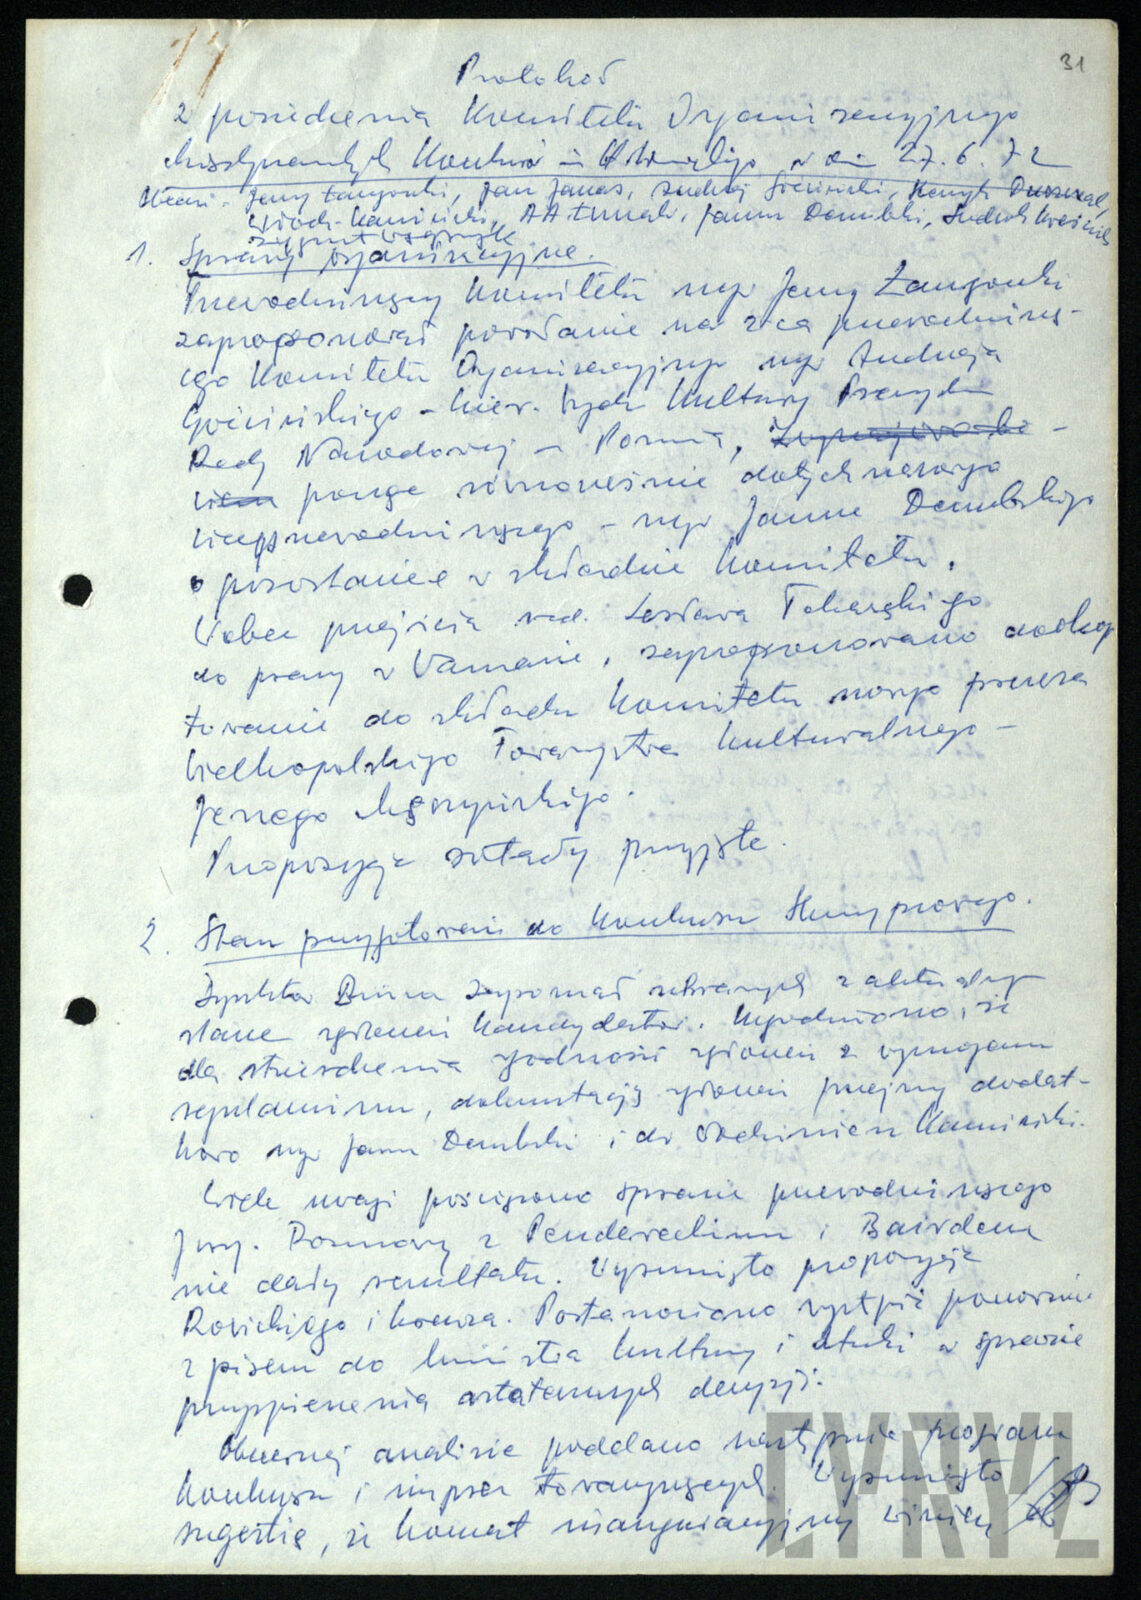 31
Protokół
z posiedzenia Komitetu Organizacyjnego
Konkursów im. H. Wieniawskiego w dn. 27.6.72
Obecni - Jerzy Łangowski, Jan Janas, Andrzej Gościński, Henryk
Włodz. Kamiński, Janusz Dembski,
Zygmunt
1. Sprawy organizacyjne.
Przewodniczący Komitetu mgr Jerzy Łangowski
zaproponował powołanie na z-cę przewodniczą-
cego Komitetu Organizacyjnego mgr Andrzeja
Gościńskiego - kier. Wydz. Kultury Prezydium
Rady Narodowej w Pozn.,
prosząc równocześnie dotychczasowego
wiceprzewodniczącego - mgr Janusza Dembskiego
o pozostanie w składzie Komitetu.
Wobec przejścia red. Lesława Tokarskiego
do pracy w Warszawie, zaproponowano dookop
towanie do składu Komitetu nowego prezesa
Wielkopolskiego Towarzystwa Kulturalnego -
Jerzego Męczyńskiego.
Propozycje zostały przyjęte.
2. Stan przygotowań do Konkursu Skrzypcowego.
Dyrektor Biura zapoznał zebranych z aktualnym
stanem zgłoszeń kandydatów. Uzgodniono, że
dla stwierdzenia zgodności zgłoszeń z wymogami
regulaminu, dokumentację zgłoszeń przejrzą dodat-
kowo mgr Janusz Dembski i dr Włodzimierz Kamiński.
Wiele uwagi poświęcono sprawie przewodniczącego
Jury. Rozmowy z Pendereckim i Bairdem
nie dały rezultatu. Wysunięto propozycję
Rowickiego i Korda. Postanowiono wystąpić ponownie
z pismem do Ministra Kultury i Sztuki w sprawie
przyspieszenia ostatecznych decyzji.
Obszernej analizie poddano następnie program
Konkursu i imprez towarzyszących. Wysunięto
sugestię, że koncert inauguracyjny winien
CYRYL